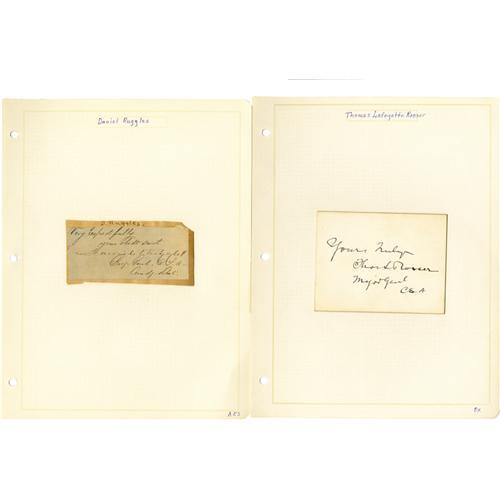 Daniel Ruggles
D Ruggles.
Very Respectfully
your Obdt Servt
Brig. Genl. C.S.A.
Comdg
AES
Thomas Lafayette Rosser
Yours Truly
Thos L Rosser
Major Genl
C.S.A